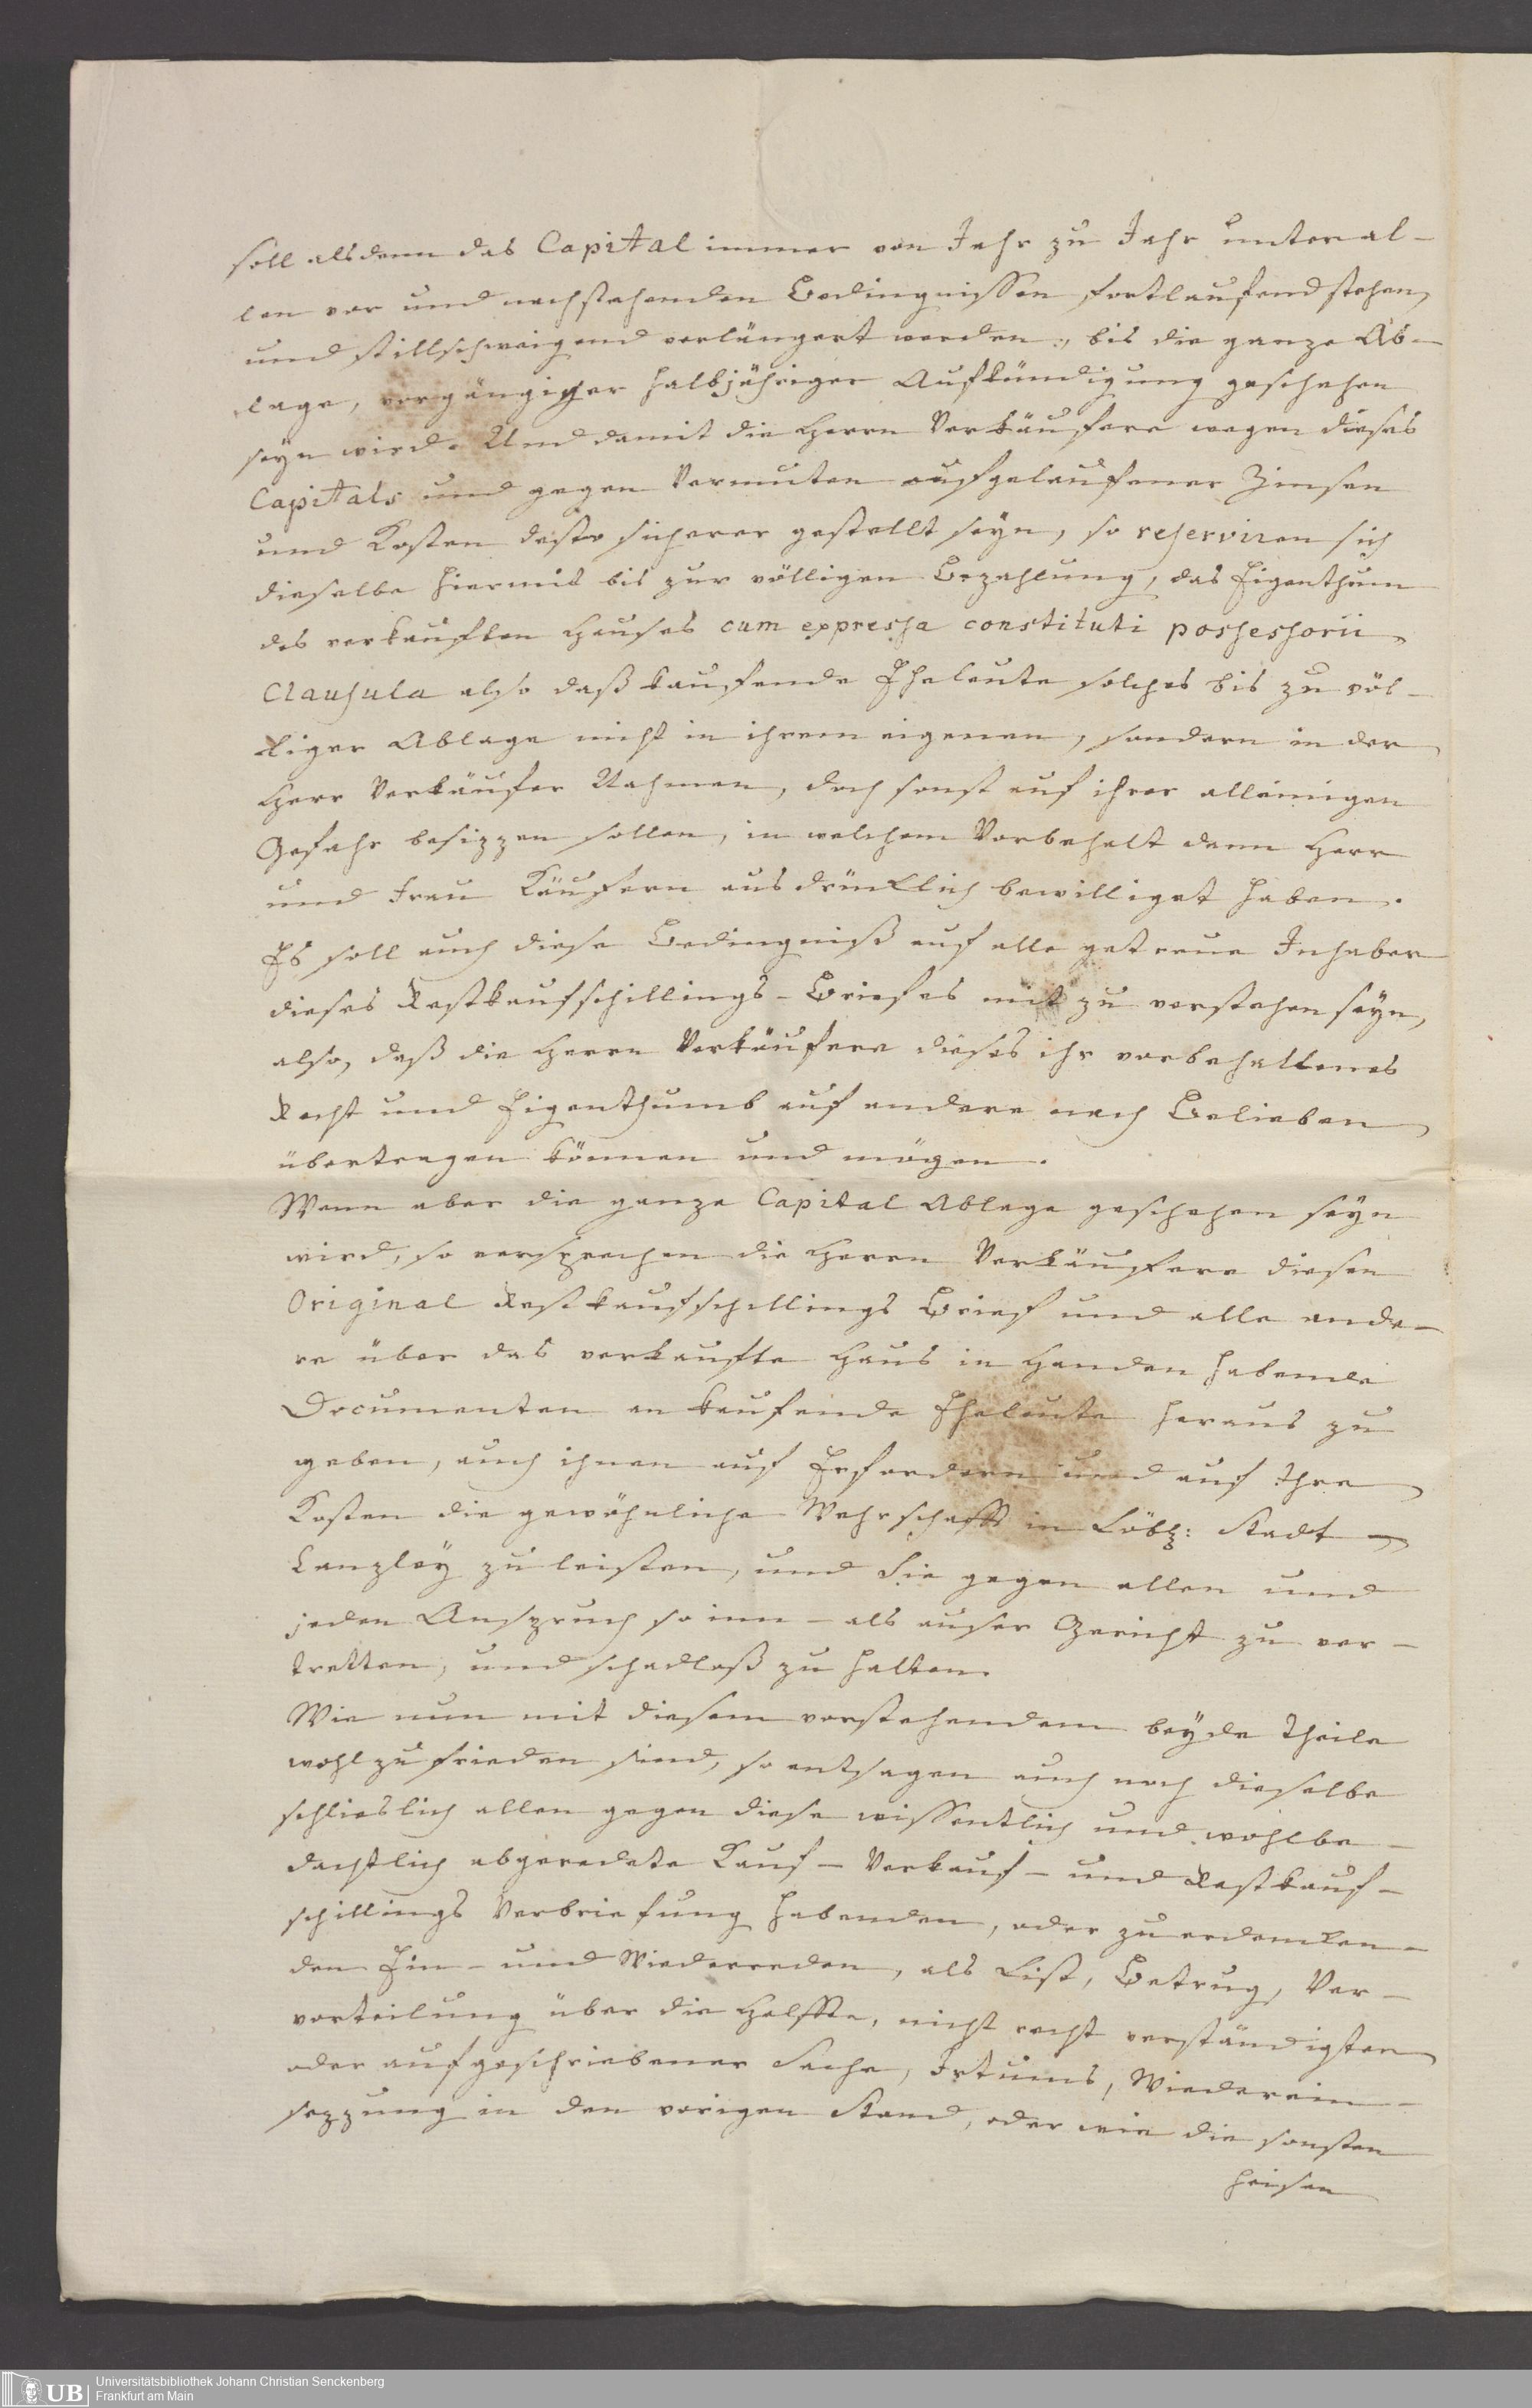 soll alsdenn das Capital immer von Jahr zu Jahr unter al-
len vor und nachstehenden Bedingnissen fortlaufend stehen,
und stillschweigend verlängert werden, bis die ganze Ab-
lage, vorgängiger halbjähriger Aufkündigung geschehen
seyn wird. Und damit die Herrn Verkäufere wegen dieses
Capitals und gegen Vermuten aufgelaufener Zinsen
und Kosten desto sicherer gestellt seyn, so reserviren sich
dieselbe hiermit bis zur völligen Bezahlung, das Eigenthum
des verkauften Hauses cum expressa constituti possessorii
Clausula also daß kaufende Eheleute solches bis zu völ-
liger Ablage nicht in ihrem eigenen, sondern in der
Herr Verkäufer Nahmen, doch sonst auf ihrer alleinigen
Gefahr besizzen sollen, in welchem Vorbehalt denn Herr
und Frau Käufern ausdrücklich bewilliget haben.
Es soll auch diese Bedingniß auf alle getreue Inhaber
dieses Restkaufschillings-Briefes mit zu verstehen seyn,
also, daß die Herrn Verkäufere dieses ihr vorbehaltenes
Recht und Eigenthumb auf andere nach Belieben
übertragen können und mögen.
Wenn aber die ganze Capital Ablage geschehen seyn
wird, so versprechen die Herrn Verkäufere diesen
Original Restkaufschillings Brief und alle ande-
re über das verkaufte Haus in Handen habende
Documenten an kaufende Eheleute heraus zu
geben, auch ihnen auf Erfordern und auf Ihre
Kosten die gewöhnliche Wehrschafft in Löbl: Stadt
Canzley zu leisten, und Sie gegen allen und
jeden Anspruch so inn- als auser Gericht zu ver-
tretten, und schadloß zu halten.
Wie nun mit diesem vorstehendem beyde Theile
wohl zufrieden sind, so entsagen auch noch dieselbe
schlieslich allen gegen diese wissentlich und wohlbe-
dachtlich abgeredete Kauf- Verkauf- und Restkauf-
schillings Verbriefung habenden, oder zu erdencken-
den Ein- und Wiederreden, als List, Betrug, Ver-
vorteilung über die Helffte, nicht recht verständigten
oder aufgeschriebener Sache, Irtums, Wiederein-
sezzung in den vorigen Stand, oder wie die sonsten
heisen
Universitätsbibliothek Johann Christian Senckenberg
UB Frankfurt am Main